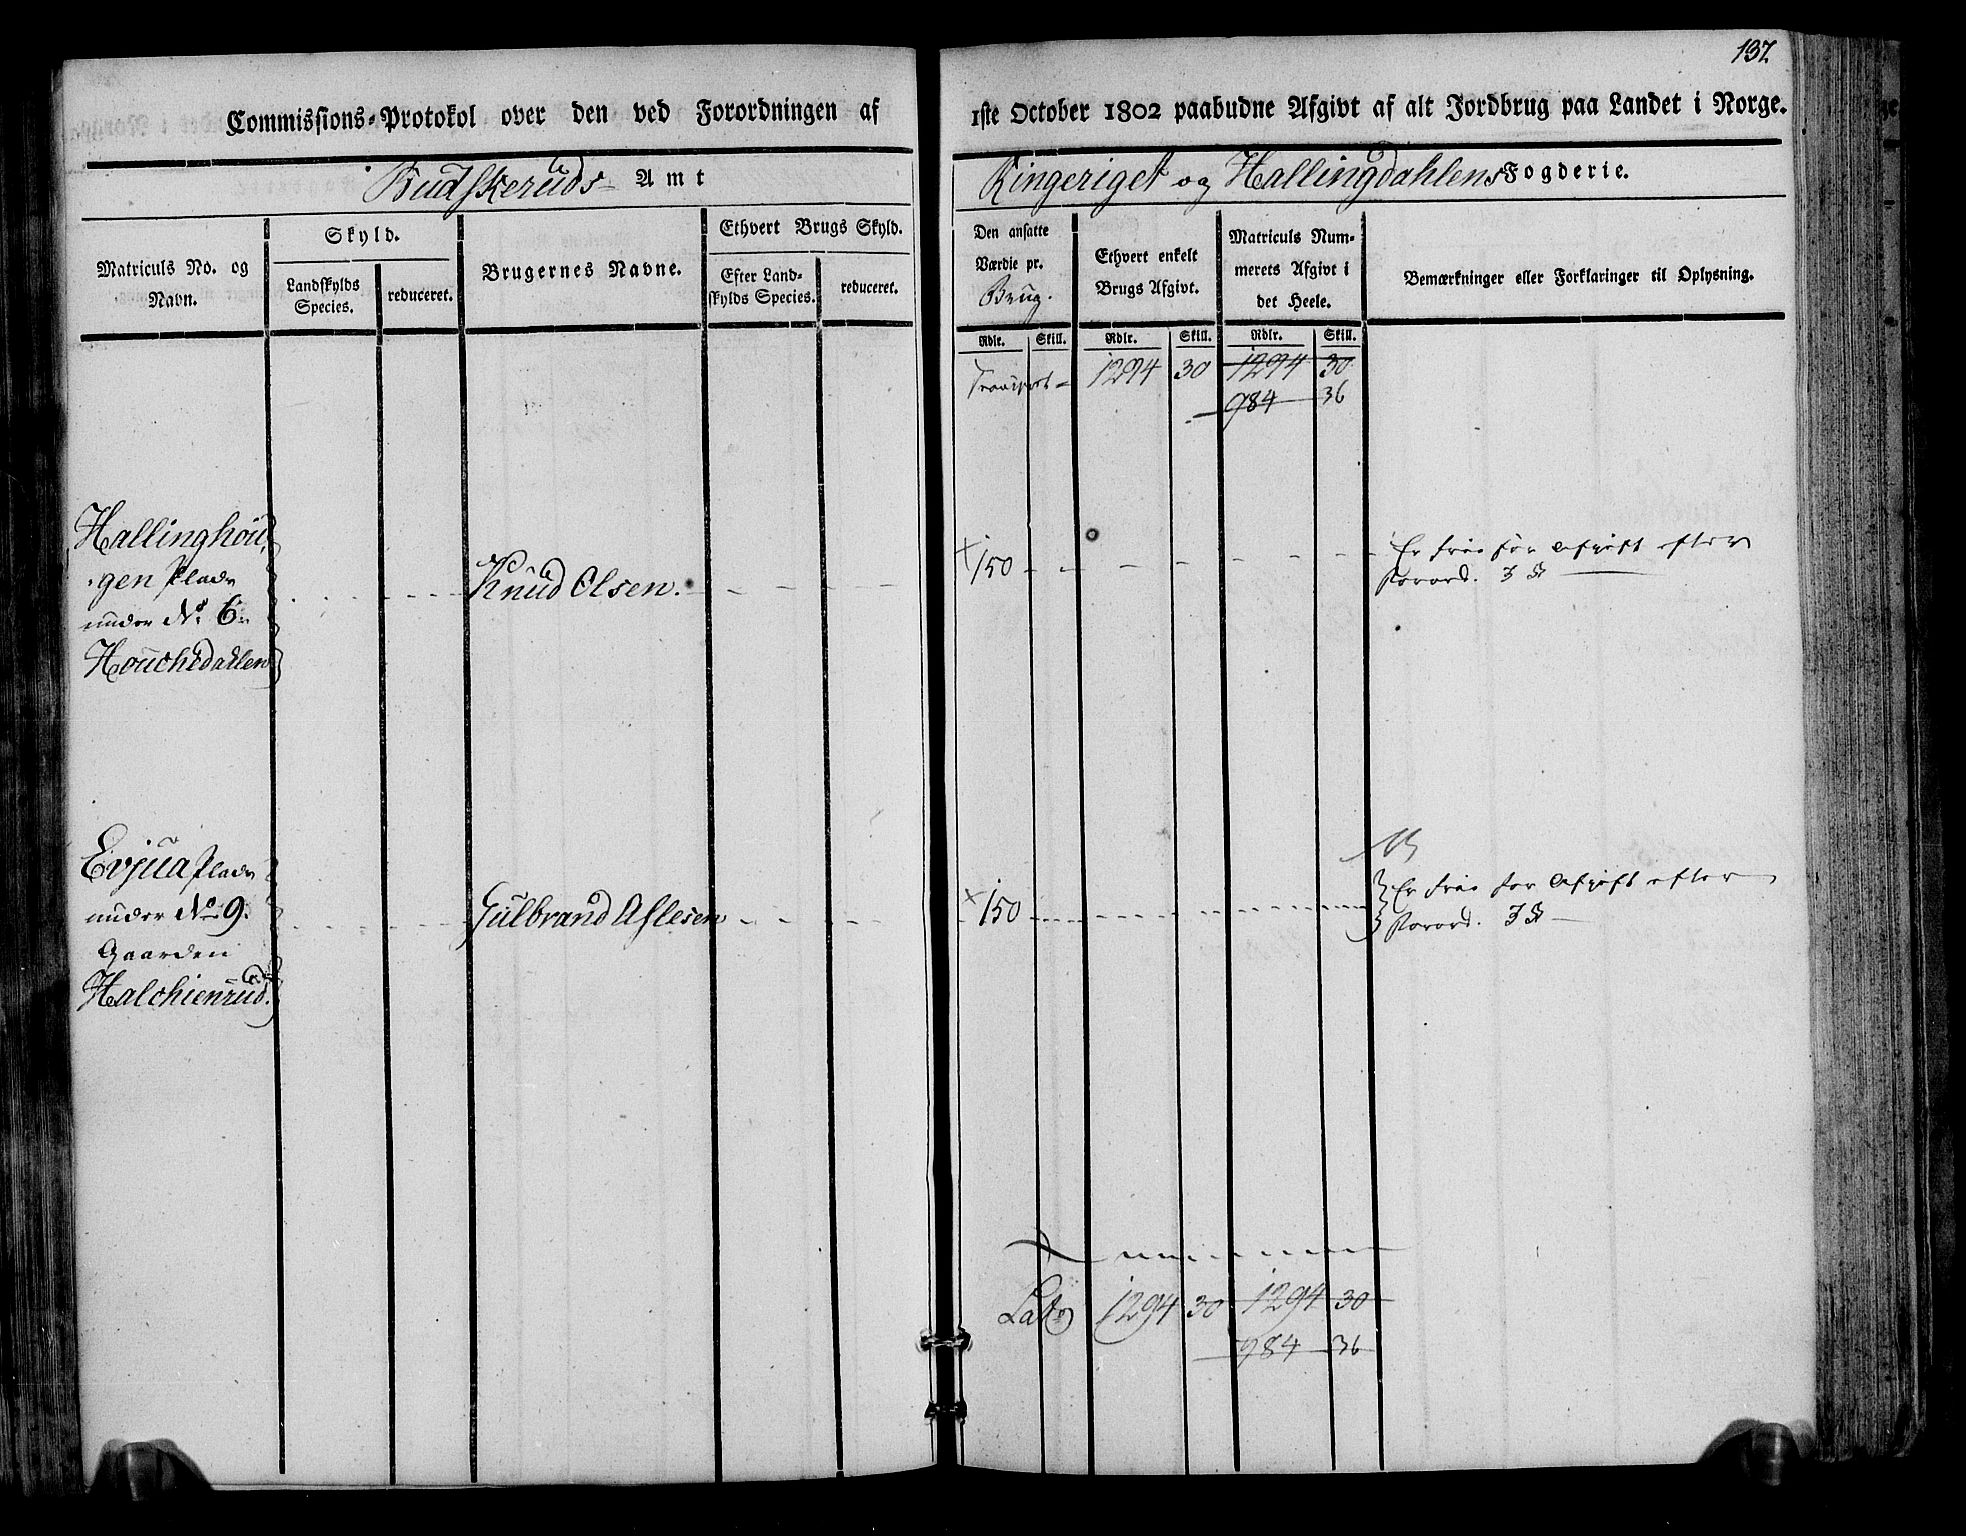 137
Commissions-Protokol over den ved Forordningen af 1ste October 1802 paabudne Afgivt af alt Jordbrug paa Landet i Norge.
Budskeruds Amt
Ringeriget og Hallingdahlens Fogderie.
Matriculs No. og Navn.
Skyld.
Landskylds Species.
reduceret.
Brugernes Navne.
Ethvert Brugs Skyld.
Efter Landskylds Species.
reduceret.
Den ansatte Værdie pr. Brug.
Ethvert enkelt Brugs Afgivt.
Matriculs Nummerets Afgivt i det Heele.
Bemærkninger eller Forklaringer til Oplysning.
Rdlr. Skill. Rdlr. Skill. Rdlr. Skill.
Transport 1294 30 1294 30
984 36
Hallinghou-
gen Plads
under No. 6
Houchedahlen
Knud Olsen.
150
Er frie for Afgift efter
Forord. 3 §
Evjua Plads
under No 9.
Gaarden
Halchienrud.
Gulbrand Aslesen
150
NB
Er frie for Afgift efter
Forord. 3 §
Lats 1294 30 1294 30
984 36